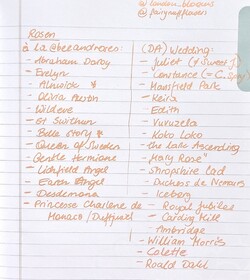 @london_blooms
@fairynuffflowers
Rosen
à La @beeandroseo:
- Abraham Darby
- Evelyn
- Alnwick
- Olivia Austin
- Wildeve
- St Swithun
- Belle Story
- Queen of Sweden
- Gentle Hermione
- Lichfield Angel
- Earth Angel
- Desdemona
- Princesse Charlene de
Monaco /Duftjuwel
(DA) Wedding:
- Juliet (# Sweet J.)
- Constance (= C. Spry)
- Mansfield Park
- Keira
- Edith
- Vuvuzela
- Koko Loko
- the Lark Ascending
- "Mary Rose"
- Shropshire Lad
- Duchess de Nemours
- Iceberg
- Royal Jubilee
- Carding Mill
- Ambridge
- William Morris
- Colette
- Roald Dahl